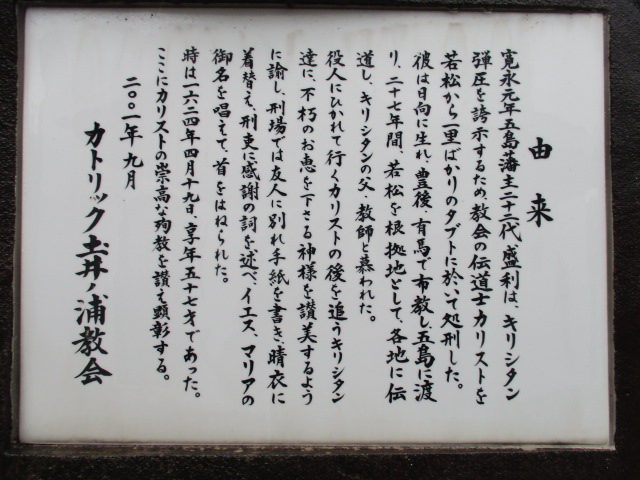 由来
寛永元年五島藩主二十二代盛利は、キリシタン
弾圧を誇示するため、教会の伝道士カリストを
若松から一里ばかりのタブトに於いて処刑した。
彼は日向に生れ、豊後・有馬で布教し、五島に渡
り、二十七年間、若松を根拠地として、各地に伝
道し、キリシタンの父・教師と慕われた。
役人にひかれて行くカリストの後を追うキリシタン
達に、不朽のお恵を下さる神様を讃美するよう
に諭し、刑場では友人に別れ手紙を書き、晴衣に
着替え、刑吏に感謝の詞を述べ、イエス、マリアの
御名を唱えて、首をはねられた。
時は一六二四年四月十九日、享年五十七才であった。
ここにカリストの崇高な殉教を讃え顕彰する。
二〇〇一年九月
カトリック土井ノ浦教会